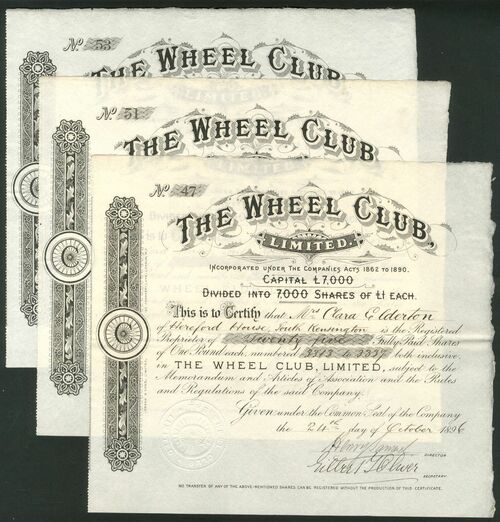 No. 53
THE WHEEL CLUB,
LIMITED.
No. 51
THE WHEEL CLUB
LIMITED
No. 47
THE WHEEL CLUB,
LIMITED.
INCORPORATED UNDER THE COMPANIES ACTS 1862 TO 1890.
CAPITAL £7,000
DIVIDED INTO 7,000 SHARES OF £1 EACH.
This is to Certify that Mrs Clara Elderton
of Hereford House, South Kensington is the Registered
Proprietor of Twenty five Fully Paid Shares
of One Pound each, numbered 3313 to 3337 both inclusive,
in THE WHEEL CLUB, LIMITED, subject to the
Memorandum and Articles of Association and the Rules
and Regulations of the said Company.
Given under the Common Seal of the Company
the 24th day of October 1896
DIRECTOR
SECRETARY.
NO TRANSFER OF ANY OF THE ABOVE-MENTIONED SHARES CAN BE REGISTERED WITHOUT THE PRODUCTION OF THIS CERTIFICATE.